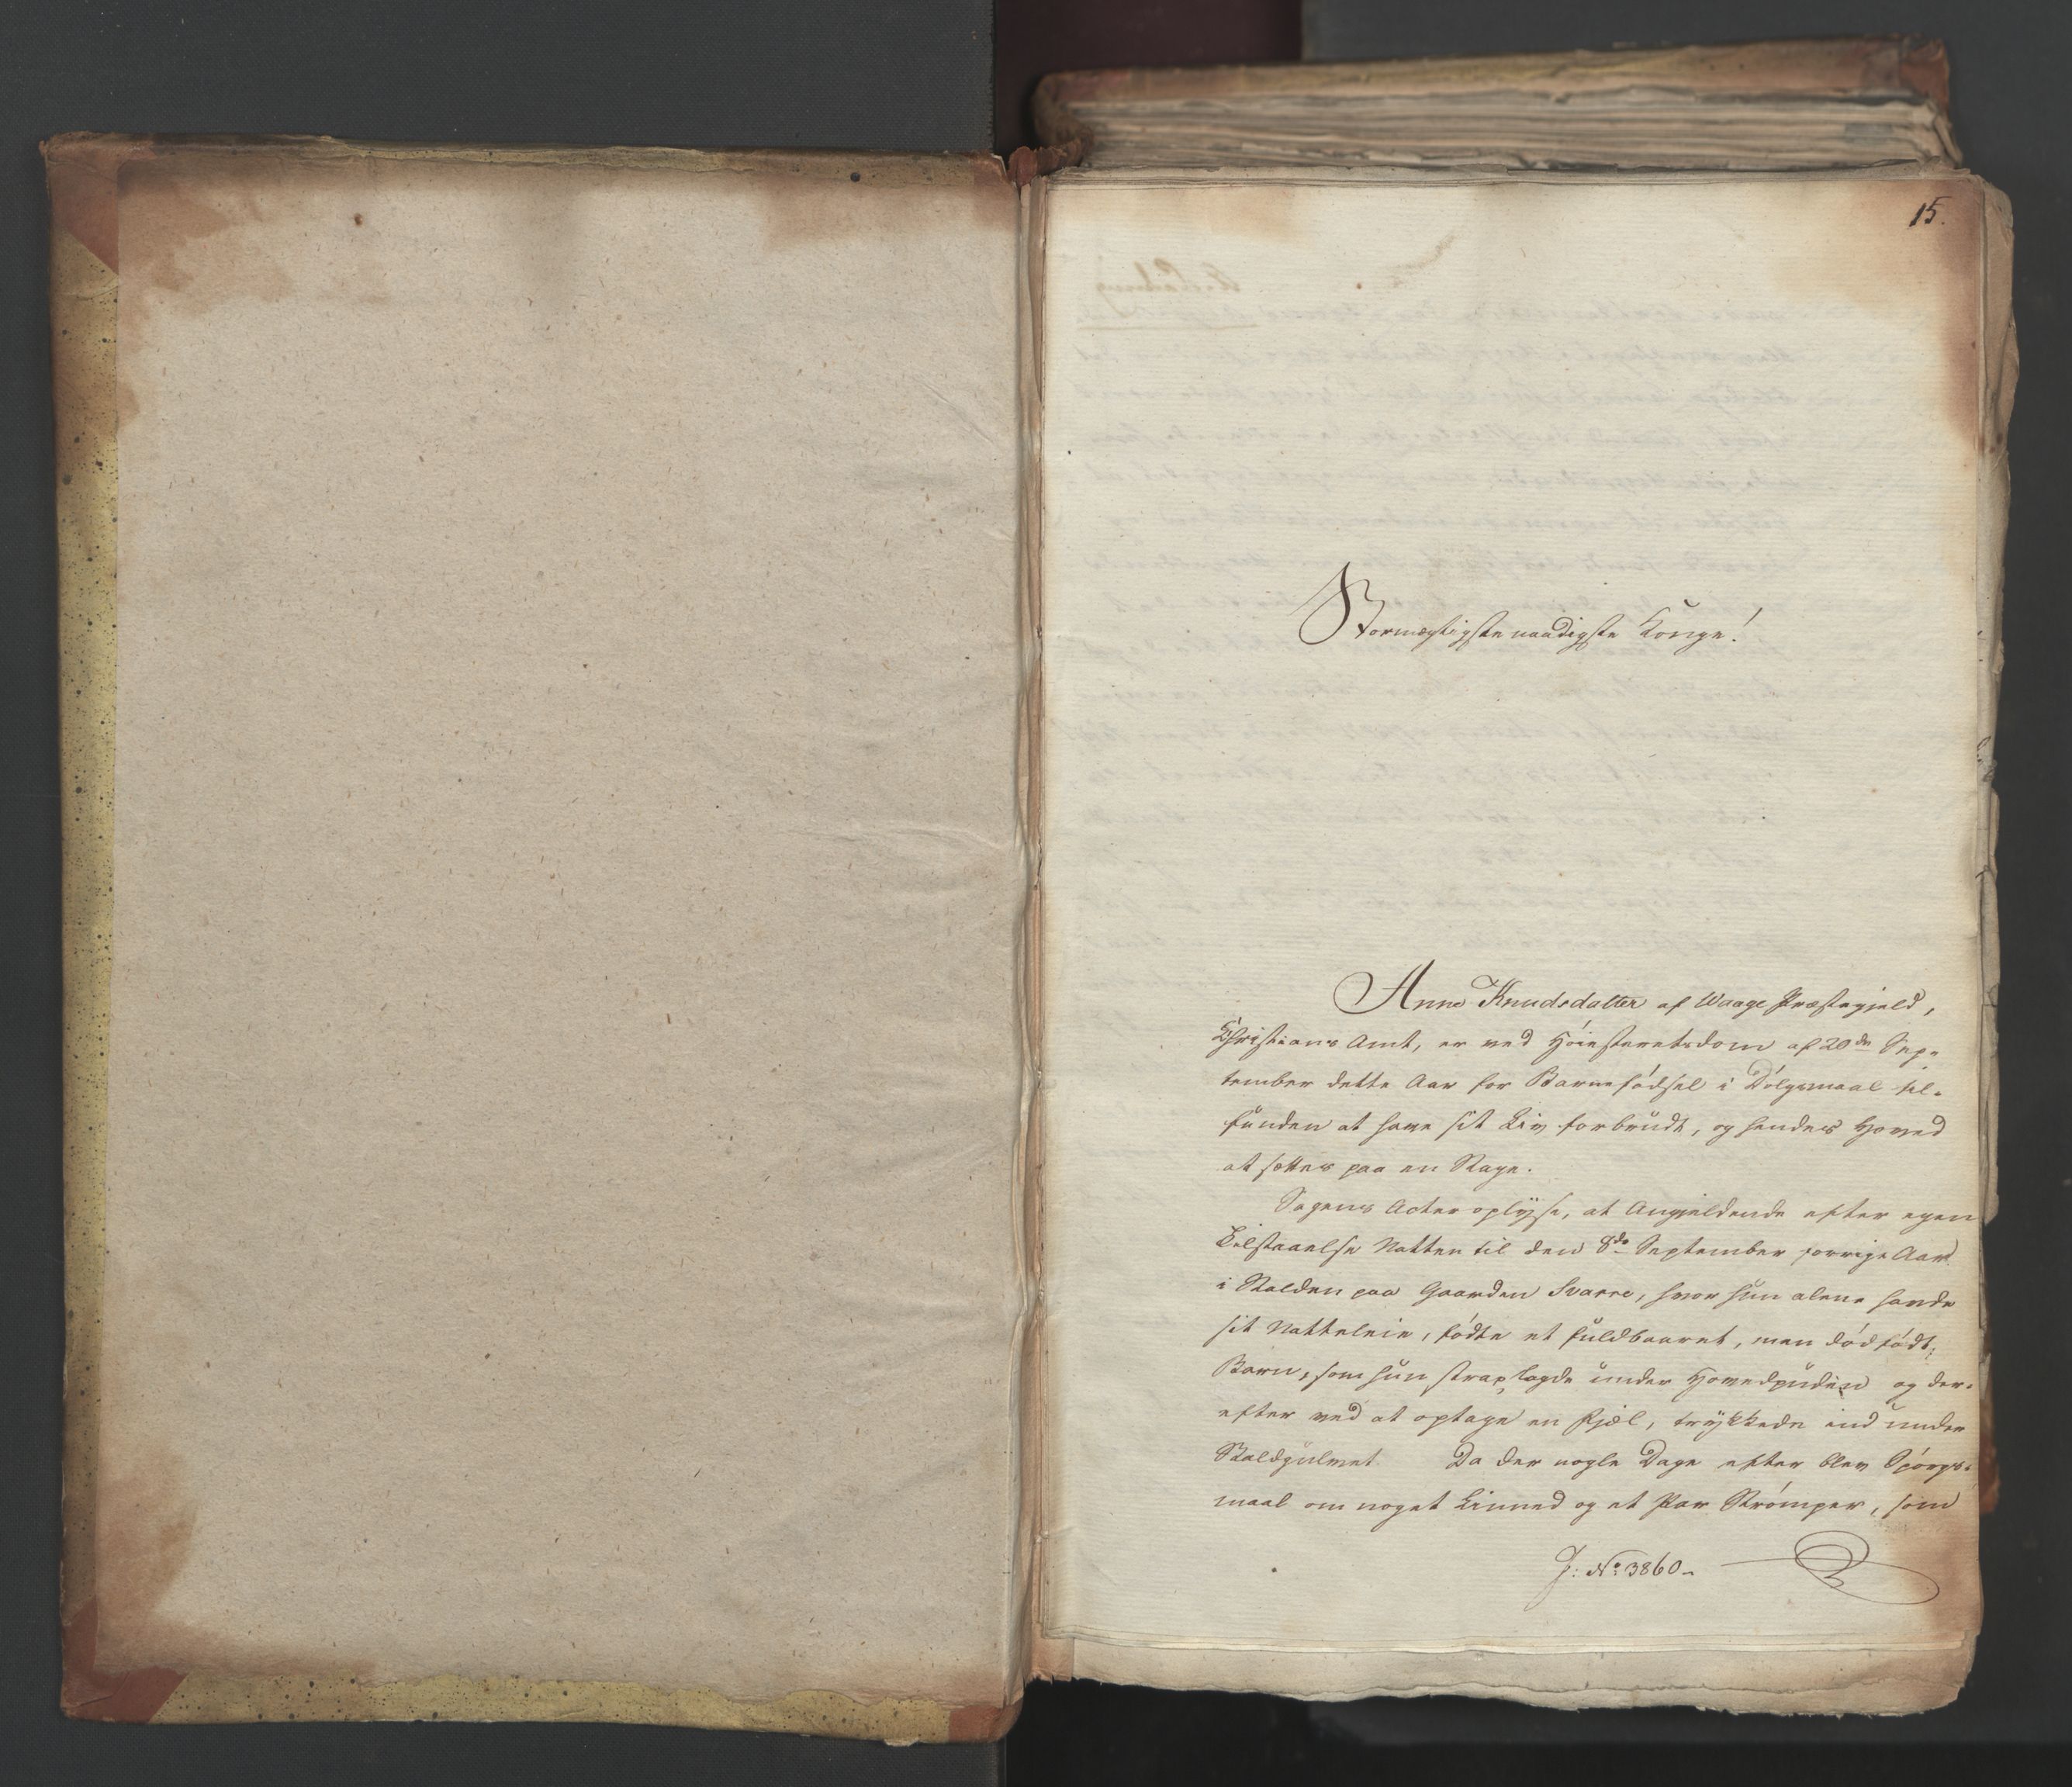 15.
Stormægtigste naadigste Konge!
Anne Knudsdatter af Waage Præstegjeld,
Christians Amt, er ved Höiesteretsdom af 20de Sep-
tember dette Aar for Barnefödsel i Dölgsmaal til-
funden at have sit Liv forbrudt, og hendes Hoved
at sættes paa en Stage.
Sagens Acter oplyse, at Angjeldende efter egen
Tilstaaelse Natten til den 8de September forrige Aar
i Stalden paa Gaarden Svarre, hvor hun alene havde
sit Natteleie, födte et fuldbaaret, men dödfödt,
Barn, som hun strax lagde under Hovedpuden og der-
efter ved at optage en Fjæl, trykkede ind under
Staldgulvet. Da der nogle Dage efter blev Spörgs-
maal om noget Linned og et Par Strömper, som
J: No 3860-